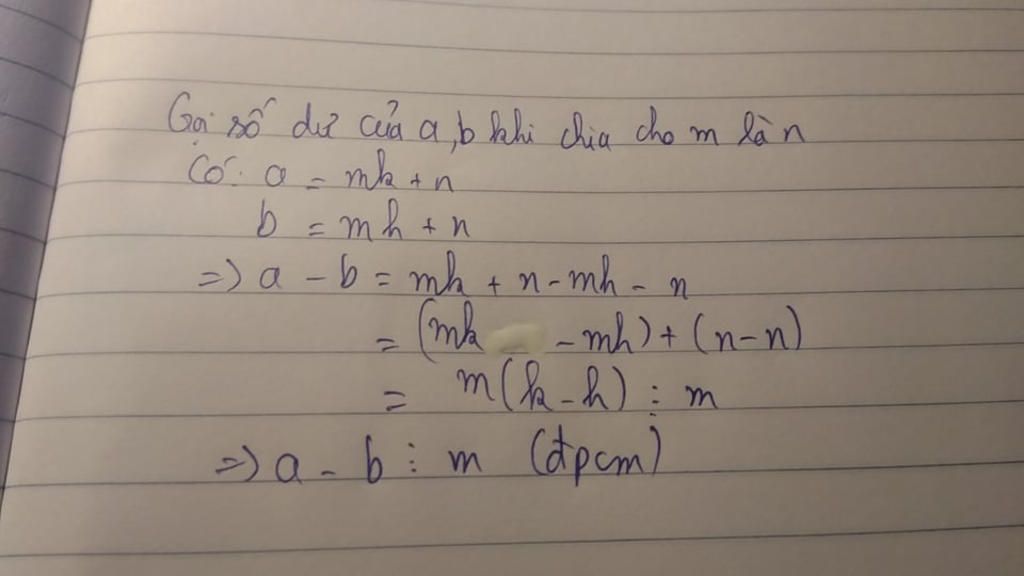 Gọi số dư của a, b khi chia cho m là n
Có: a = mk + n
b = mh + n
=> a - b = mk + n - mh - n
= (mk - mh) + (n - n)
= m(k - h) ⋮ m
=> a - b ⋮ m (đpcm)